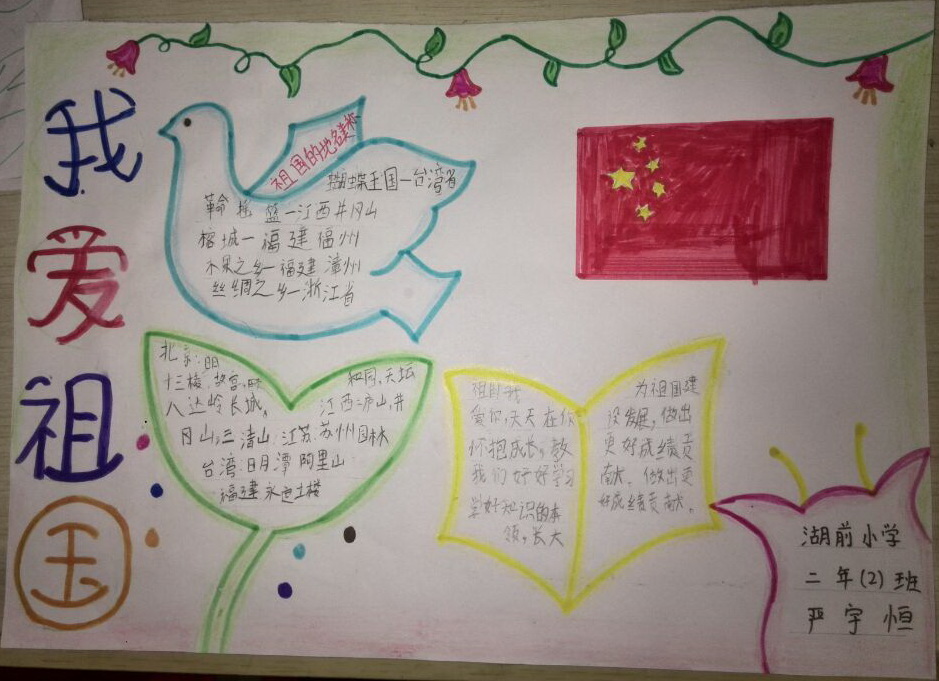 我爱祖国
祖国的地名美称
蝴蝶王国—台湾省
摇篮—江西井冈山
榕城—福建福州
水果之乡—福建漳州
丝绸之乡—浙江省
北京:明
十三棱,故宫,
胡同,天坛
八达岭长城。
江西:庐山,井
冈山,三清山,江苏:苏州园林
台湾:日月潭 阿里山
福建永定土楼
祖国我
爱你,天天在你
怀抱成长,教
我们好好学习
学好知识的本
领,长大
为祖国建
设发展,做出
更好成绩贡
献。做出更
好成绩贡献。
湖前小学
二年(2)班
严宇恒